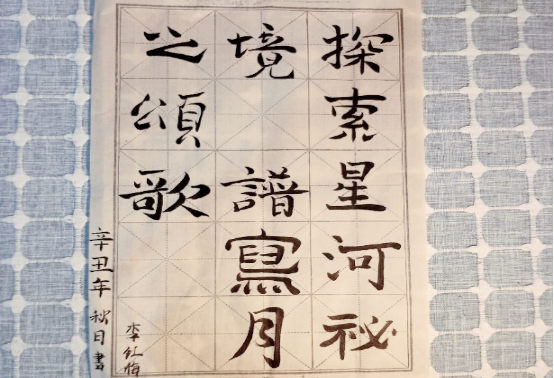 探索星河祕
境 譜寫月
之頌歌
辛丑年 秋日書
李红梅